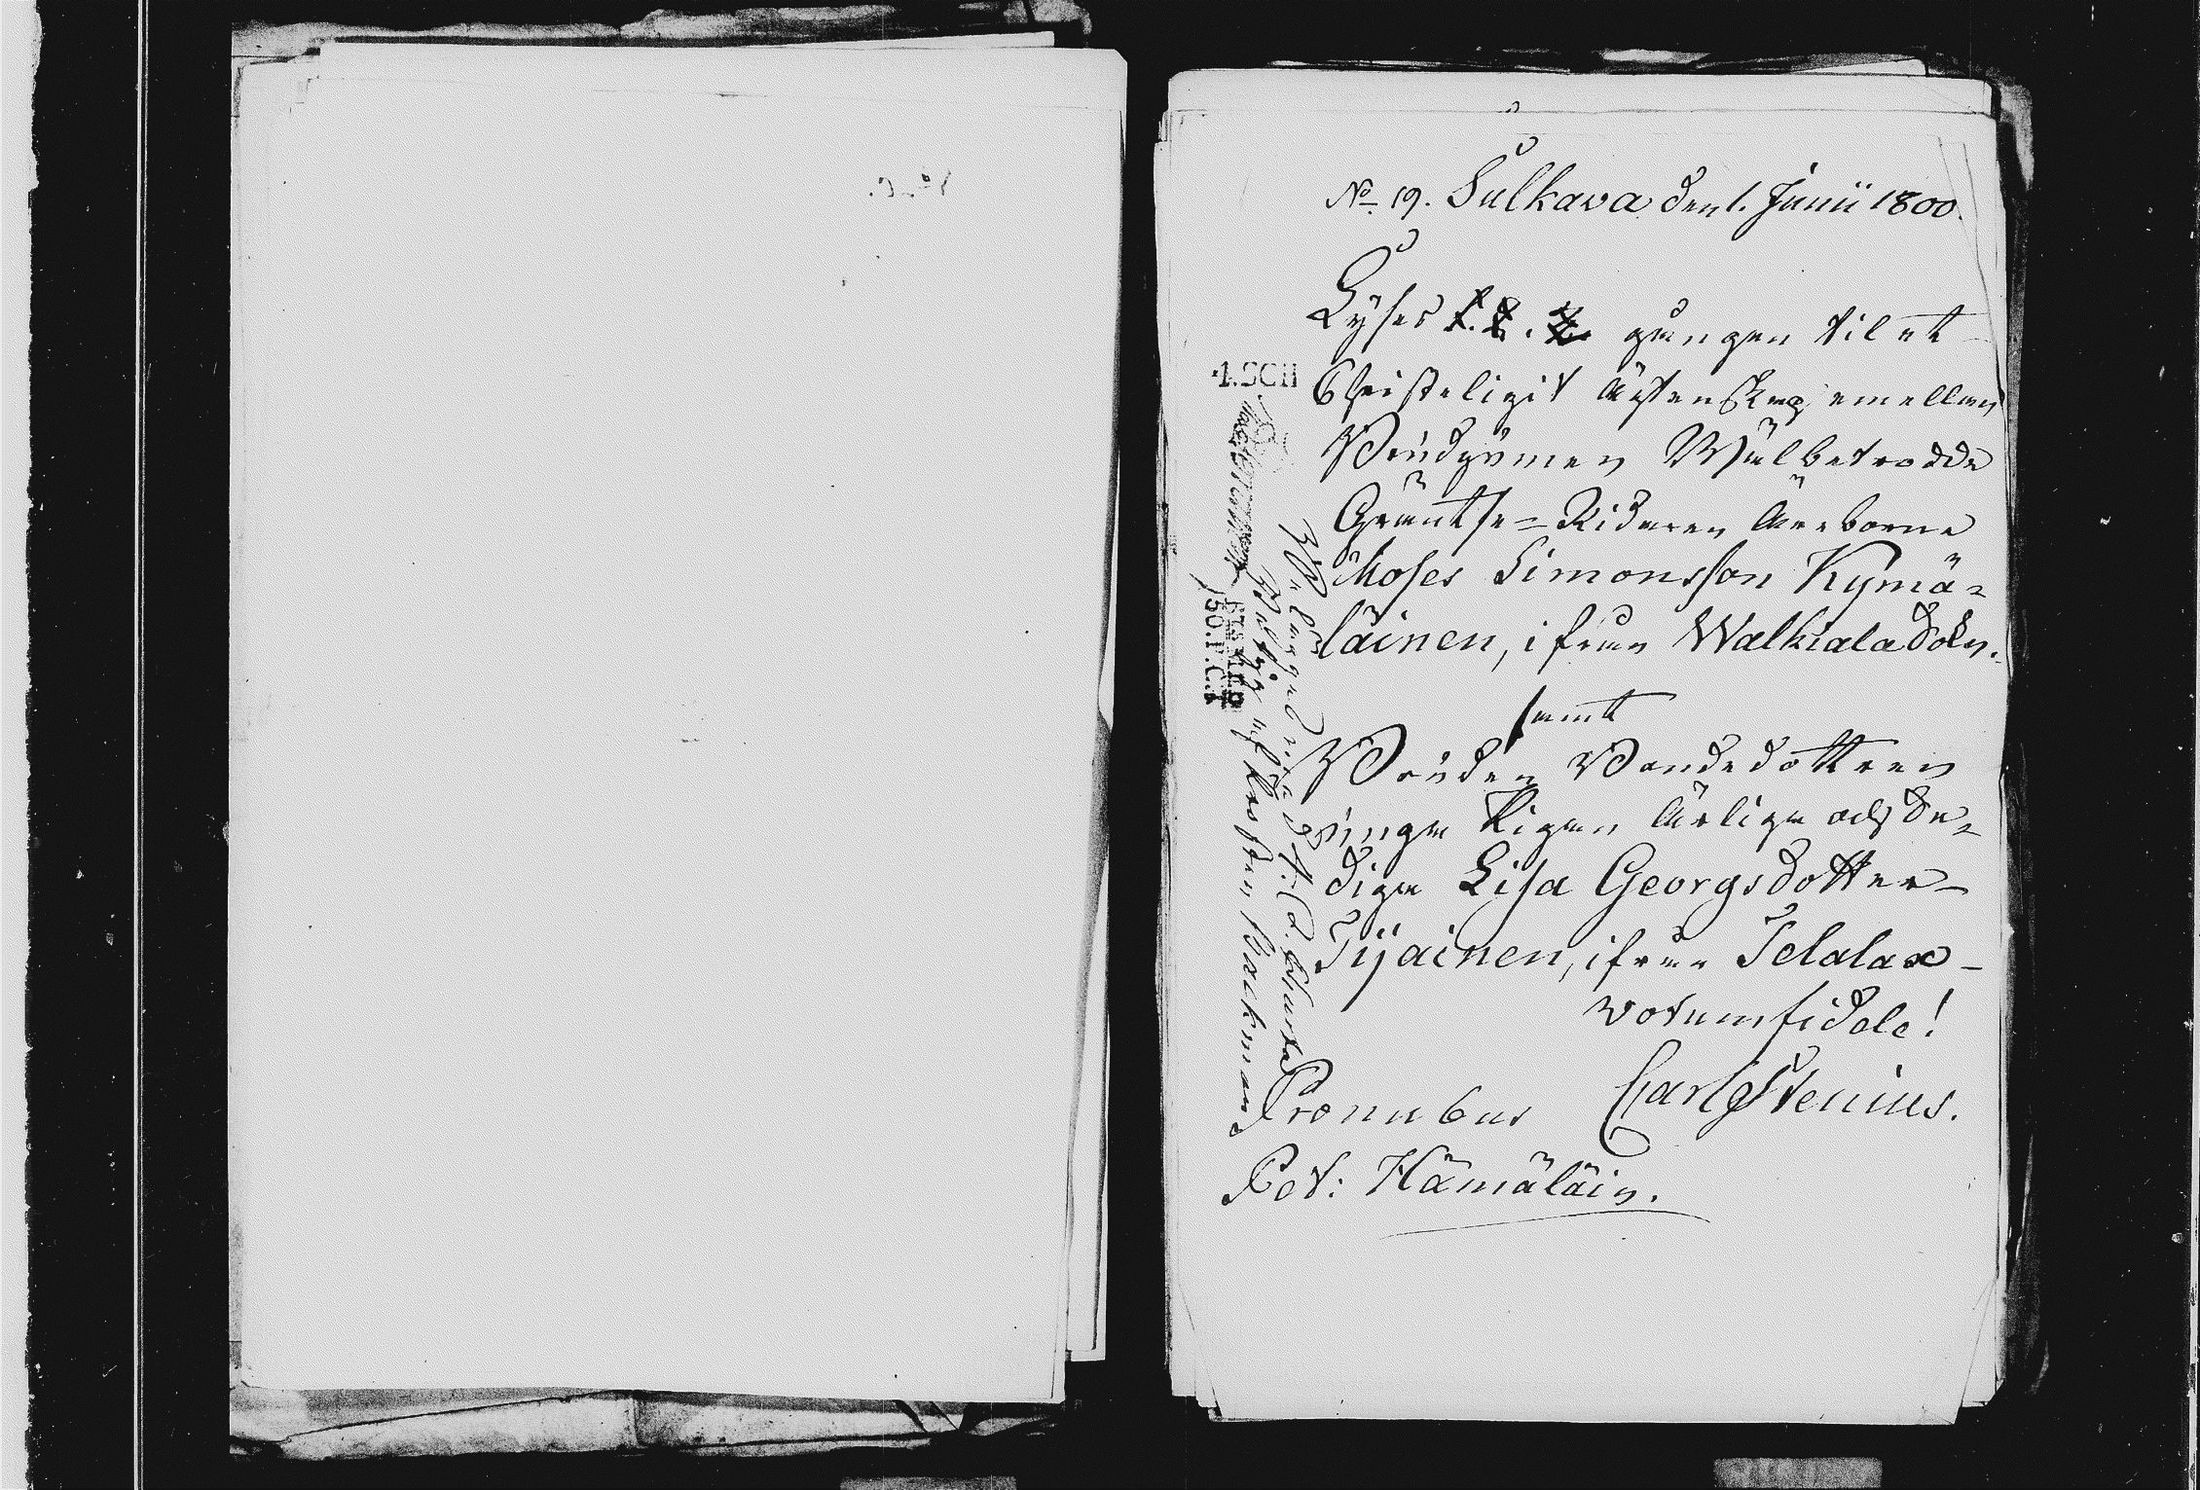 No 19. Sulkava den 1. Junii 1800.
Lyses 1. 2. 3. gången til et
Christeligit Ägtenskap emellan
Brudgumen Wälbetrodde
Gräntse=Ridaren Äreborne
Moses Simonsson Kymä=
läinen, ifrån Walkiala Sokn.
samt
Bruden Bondedottren
unga Pigan Ärliga och Du=
diga Lisa Georgsdotter
Tijainen, ifrån Telalax
votum fidele!
Pronubus Carl Stenius.
Pet: Hämäläin.
4.SCH
50.P.C.t